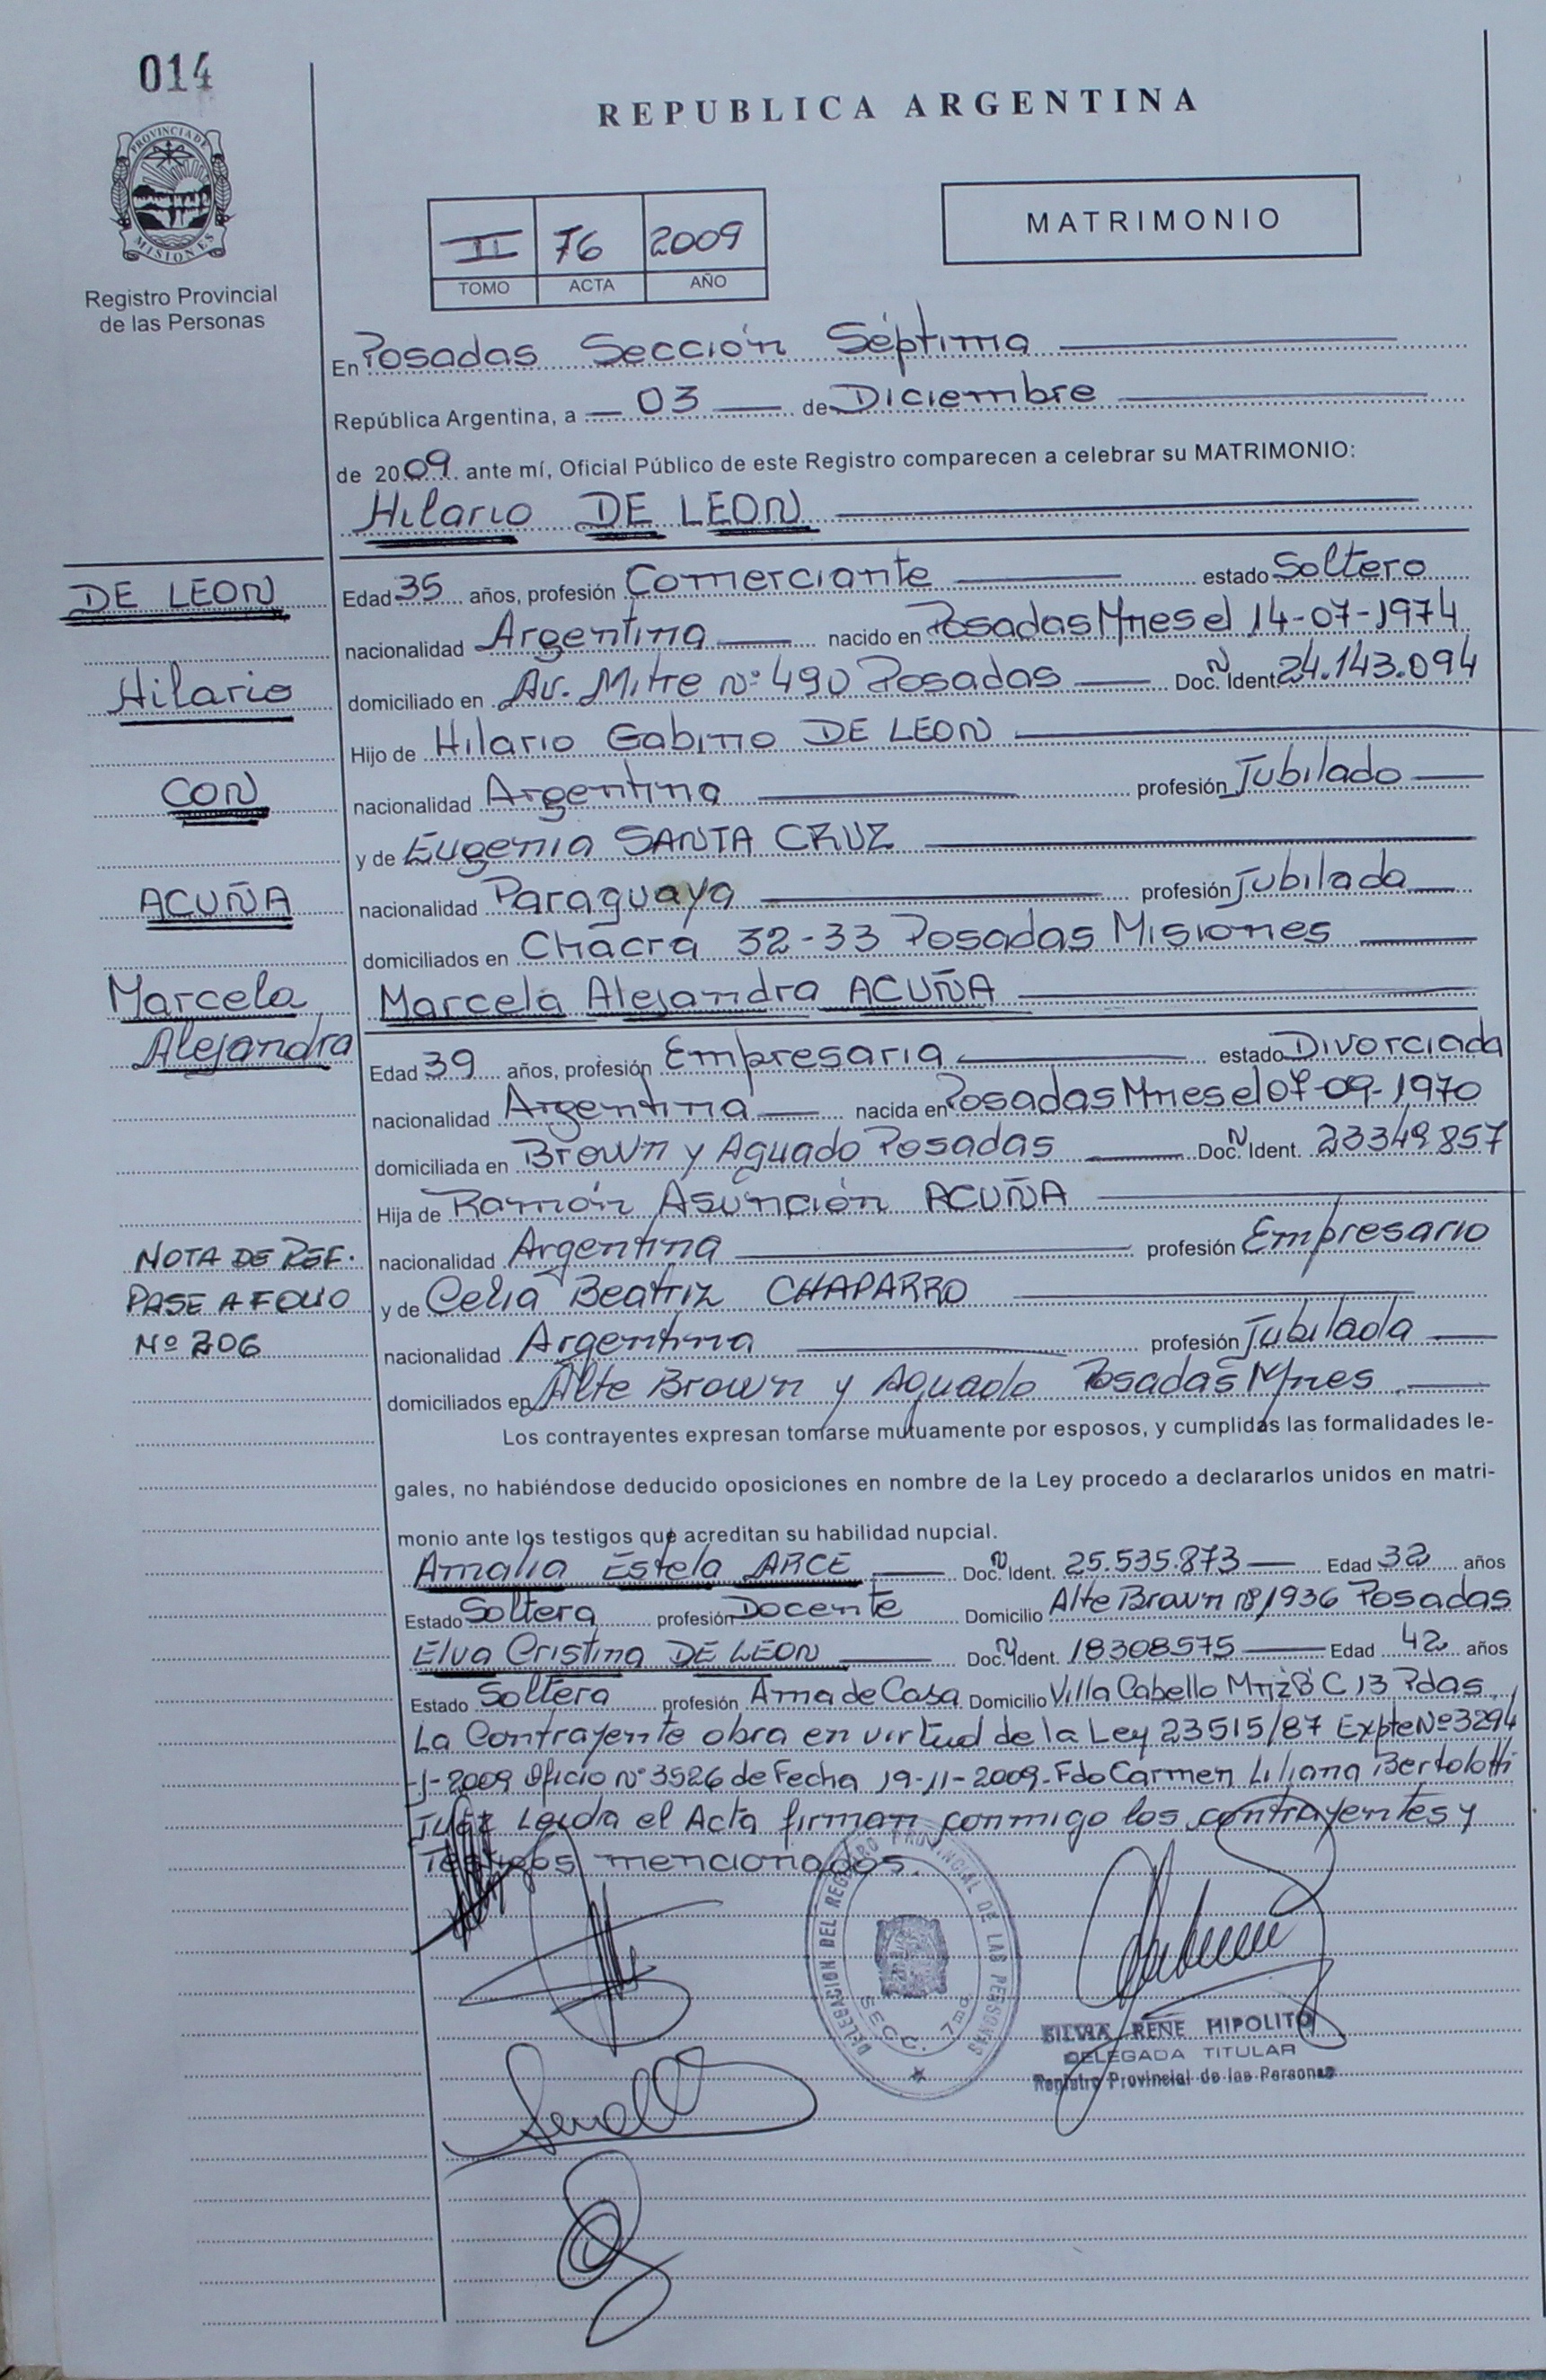 014
PROVINCIA DE
MISIONES
Registro Provincial
de las Personas
REPUBLICA ARGENTINA
II 76 2009
TOMO ACTA AÑO
MATRIMONIO
En Posadas Sección Séptima
República Argentina, a 03 de Diciembre
de 2009 ante mí, Oficial Público de este Registro comparecen a celebrar su MATRIMONIO:
Hilario DE LEON
DE LEON
Hilario
CON
ACUÑA
Marcela
Alejandra
Edad 35 años, profesión Comerciante estado Soltero
nacionalidad Argentina nacido en Posadas Mnes el 14-07-1974
domiciliado en Av. Mitre Nº 490 Posadas Doc. N Ident 24.143.094
Hijo de Hilario Gabino DE LEON
nacionalidad Argentina profesión Jubilado
y de Eugenia SANTA CRUZ
nacionalidad Paraguaya profesión Jubilada
domiciliados en Chacra 32-33 Posadas Misiones
Marcela Alejandra ACUÑA
Edad 39 años, profesión Empresaria estado Divorciada
nacionalidad Argentina nacida en Posadas Mnes el 07-09-1970
domiciliada en Brown y Aguado Posadas Doc. N Ident. 23349.857
Hija de Ramón Asunción ACUÑA
nacionalidad Argentina profesión Empresario
y de Celia Beatriz CHAPARRO
nacionalidad Argentina profesión Jubilada
domiciliados en Alte Brown y Aguado Posadas Mnes
NOTA DE REF.
PASE A FOLIO
Nº 206
Los contrayentes expresan tomarse mutuamente por esposos, y cumplidas las formalidades le-
gales, no habiéndose deducido oposiciones en nombre de la Ley procedo a declararlos unidos en matri-
monio ante los testigos que acreditan su habilidad nupcial.
Amalia Estela ARCE Doc. N Ident. 25.535.873 Edad 32 años
Estado Soltera profesión Docente Domicilio Alte Brown Nº 1936 Posadas
Elva Cristina DE LEON Doc. N Ident. 18308575 Edad 42 años
Estado Soltera profesión Ama de Casa Domicilio Villa Cabello Mnz B C 13 Pdas.
La Contrayente obra en virtud de la Ley 23515/87 Expte Nº 3294
-J-2009 Oficio Nº 3526 de Fecha 19-11-2009. Fdo Carmen Liliana Bertolotti
Juez Leida el Acta firman conmigo los contrayentes y
Testigos mencionados.
DELEGACION DEL REGISTRO PROVINCIAL DE LAS PERSONAS
SECC. 7ma
SILVIA RENE HIPOLITO
DELEGADA TITULAR
Registro Provincial de las Personas